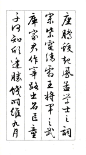 座騰蛟起鳳孟學士之詞
宗紫電清霜王將軍之武
庫家君作宰路出名區童
子何知躬逢勝餞時維九月